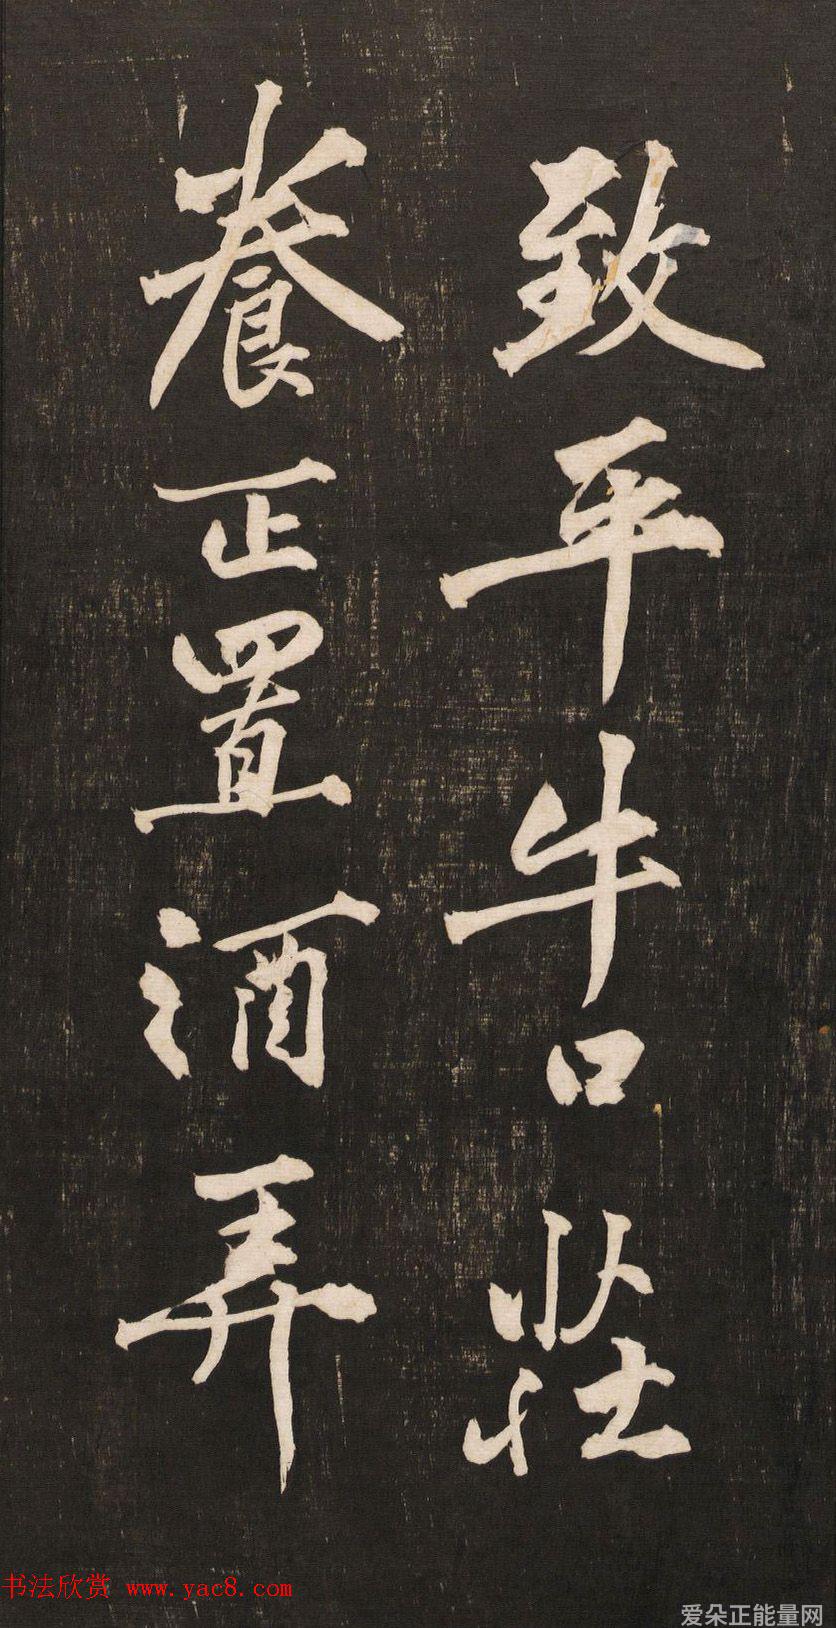 致平牛口莊
養正置酒弄
书法欣赏 www.yac8.com
爱朵正能量网